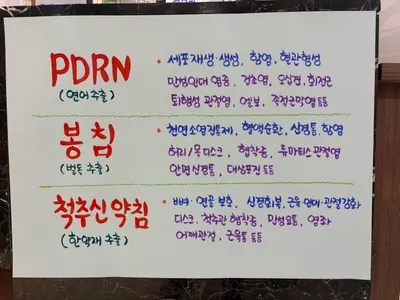 PDRN
(연어 추출)
• 세포재생·생성, 항염, 혈관형성
만성인대 염증, 건초염, 오십견, 회전근
퇴행성 관절염, 엘보, 족저근막염 등등
봉침
(벌독 추출)
• 천연소염진통제, 혈액순환, 신경통, 항염
허리/목 디스크, 협착증, 류마티스 관절염
안면신경통, 대상포진 등등
척추신약침
(한약재 추출)
• 뼈·연골 보호, 신경회복, 근육·인대·관절강화
디스크, 척추관 협착증, 만성요통, 염좌
어깨관절, 근육통 등등